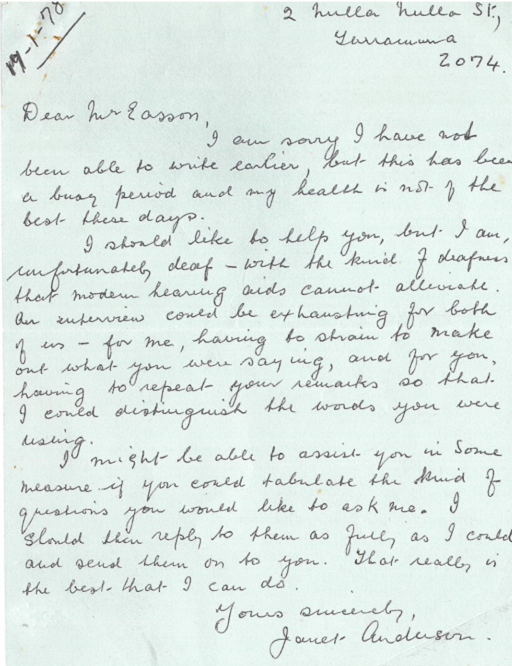 19-1-78
2 Nulla Nulla St.,
Turramurra
2074.
Dear Mr Easson,
I am sorry I have not
been able to write earlier, but this has been
a busy period and my health is not of the
best these days.
I should like to help you, but I am,
unfortunately deaf – with the kind of deafness
that modern hearing aids cannot alleviate.
An interview could be exhausting for both
of us – for me, having to strain to make
out what you were saying, and for you,
having to repeat your remarks so that
I could distinguish the words you were
using.
I might be able to assist you in some
measure if you could tabulate the kind of
questions you would like to ask me. I
should then reply to them as fully as I could
and send them on to you. That really is
the best that I can do.
Yours sincerely,
Janet Anderson.